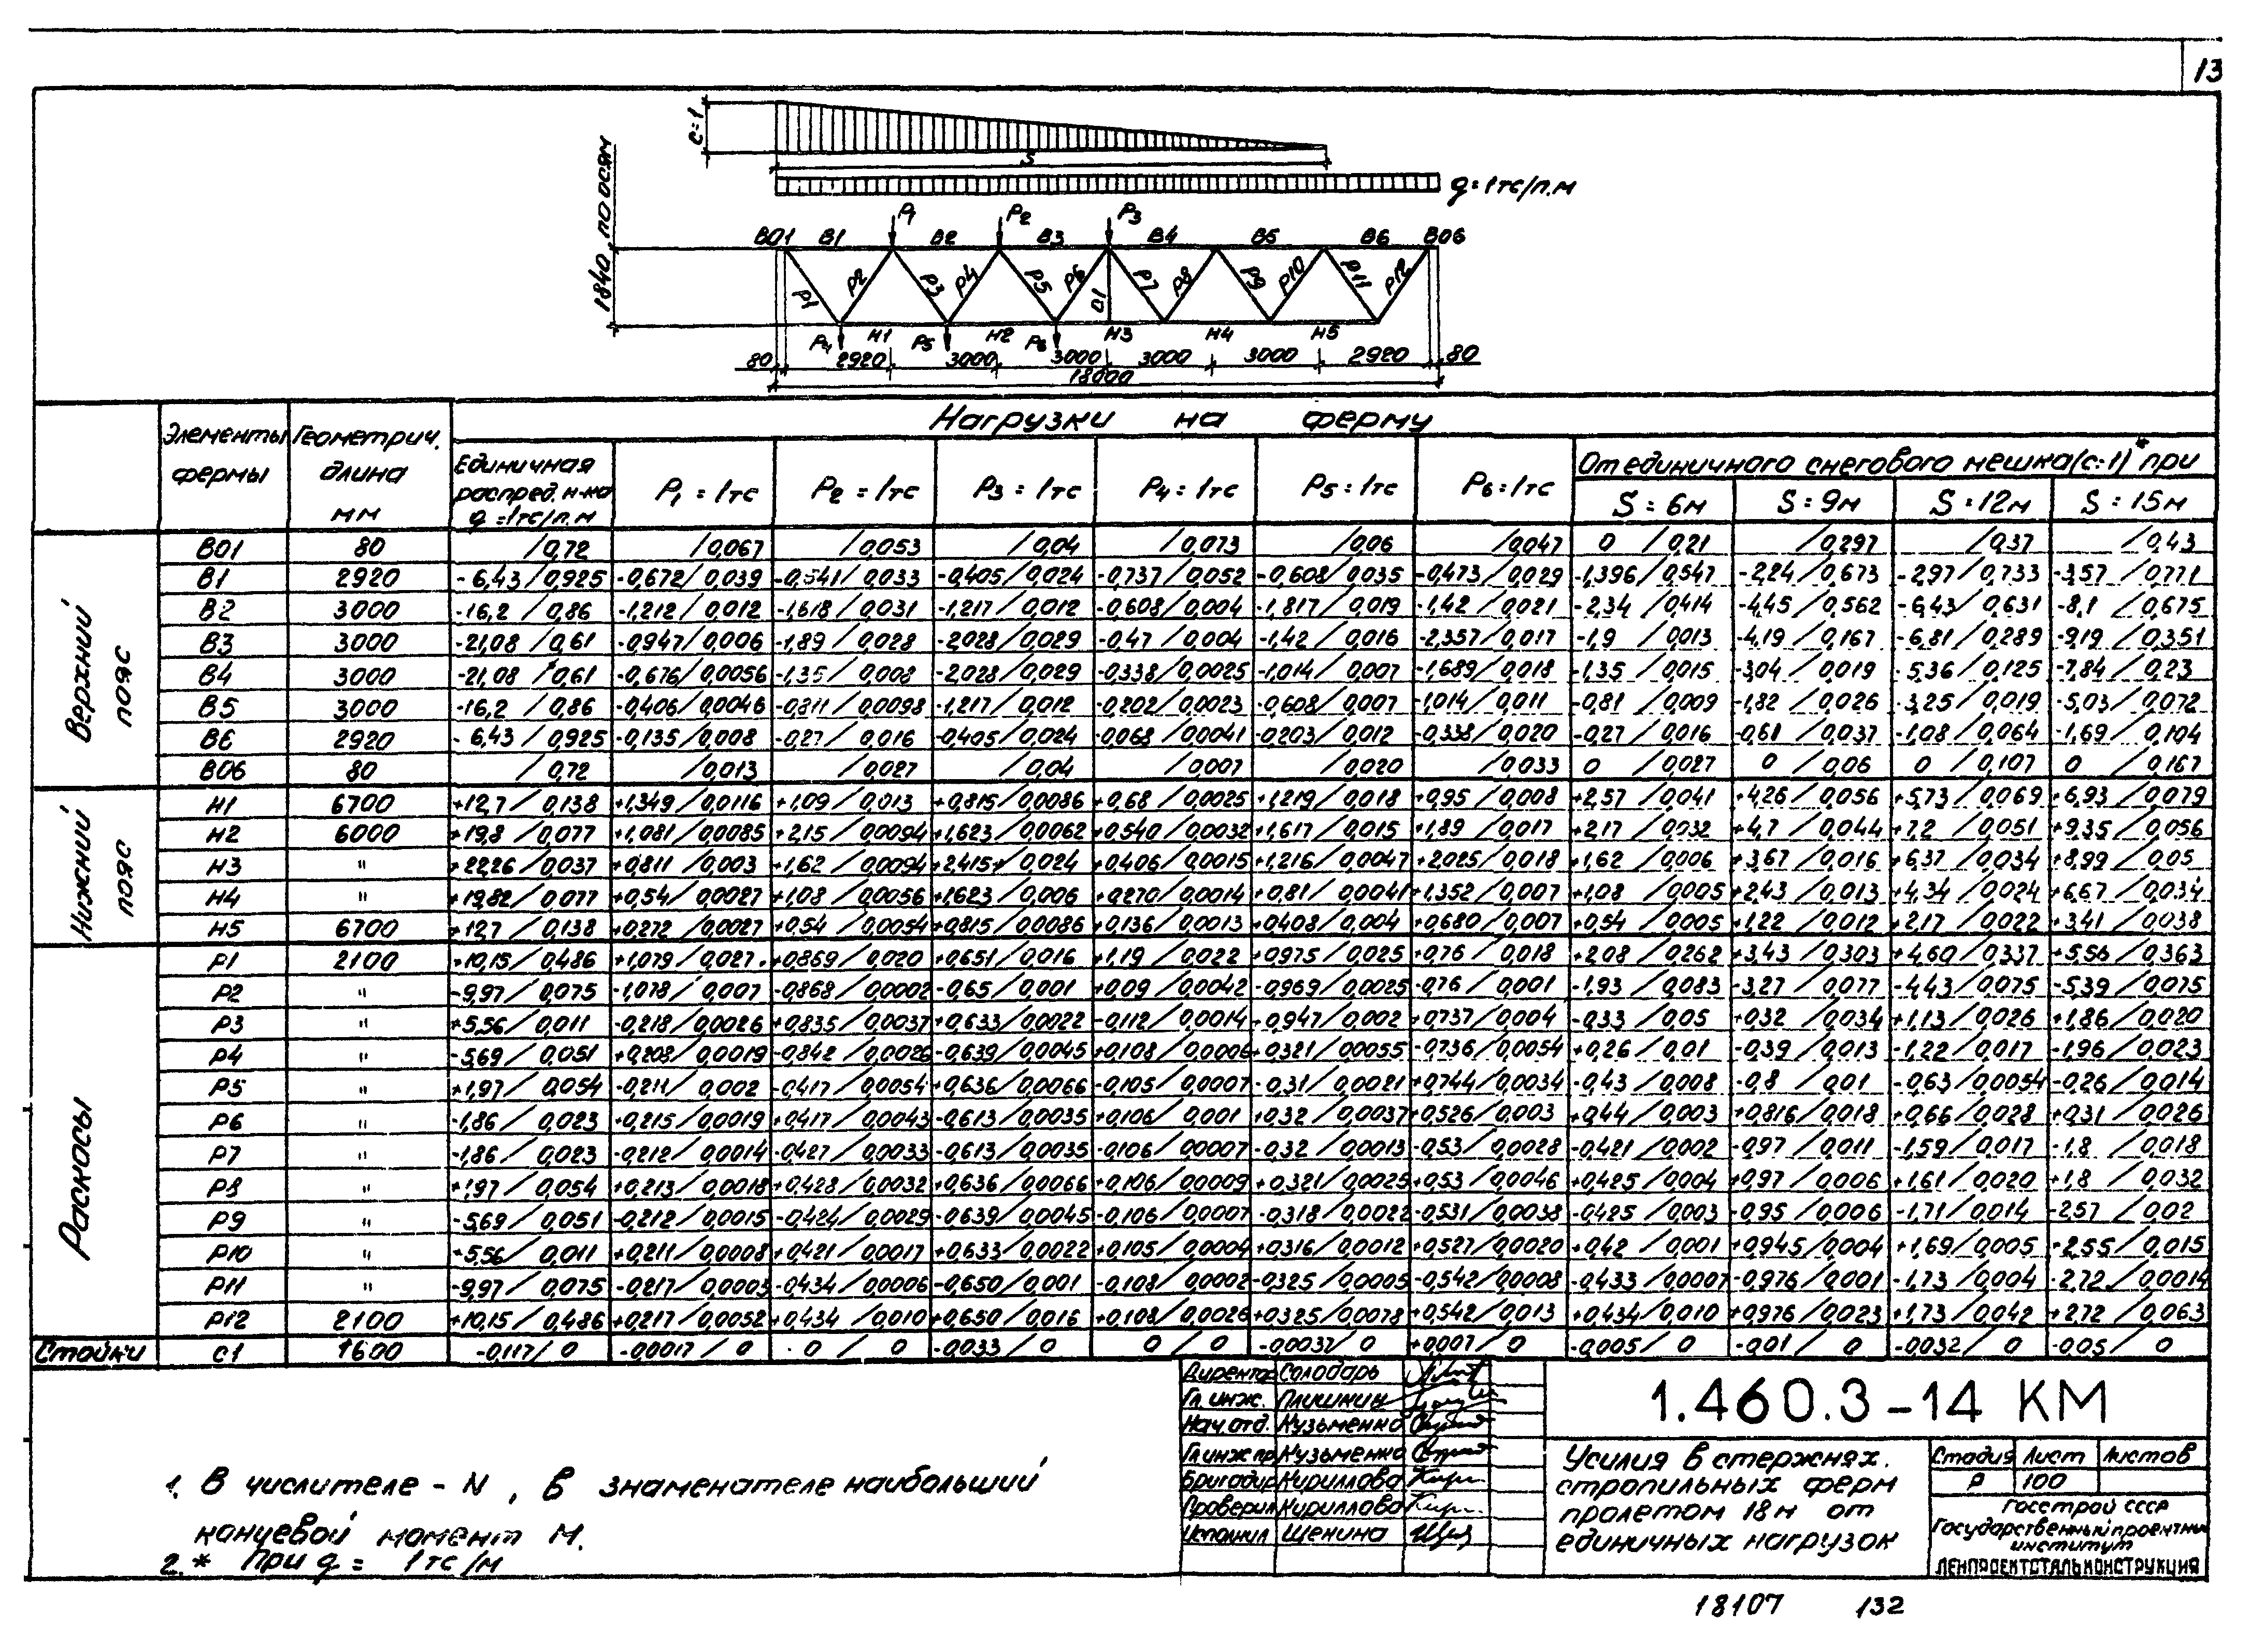 13
c=1
S
q=1тс/п.м
1840 по осям
P1 P2 P3
В01 В1 В2 В3 В4 В5 В6 В06
р1 р2 р3 р4 р5 р6 С1 р7 р8 р9 р10 р11 р12
P4 Н1 P5 Н2 P6 Н3 Н4 Н5
80 2920 3000 3000 3000 3000 2920 80
18000
Элементы фермы
Геометрич. длина мм
Нагрузки на ферму
Единичная распред. н-ка q=1тс/п.м
P1=1тс P2=1тс P3=1тс P4=1тс P5=1тс P6=1тс
От единичного снегового мешка (с=1)* при
S=6м S=9м S=12м S=15м
Верхний пояс
В01 80 /0,72 /0,067 /0,053 /0,04 /0,073 /0,06 /0,047 0/0,21 /0,297 /0,37 /0,43
В1 2920 -6,43/0,925 -0,672/0,039 -0,541/0,033 -0,405/0,024 -0,737/0,052 -0,608/0,035 -0,473/0,029 -1,396/0,547 -2,24/0,673 -2,97/0,733 -3,57/0,771
В2 3000 -16,2/0,86 -1,212/0,012 -1,618/0,031 -1,217/0,012 -0,608/0,004 -1,817/0,019 -1,42/0,021 -2,34/0,414 -4,45/0,562 -6,43/0,631 -8,1/0,675
В3 3000 -21,08/0,61 -0,947/0,006 -1,89/0,028 -2,028/0,029 -0,47/0,004 -1,42/0,016 -2,357/0,017 -1,9/0,013 -4,19/0,167 -6,81/0,289 -9,19/0,351
В4 3000 -21,08/0,61 -0,676/0,0056 -1,35/0,008 -2,028/0,029 -0,338/0,0025 -1,014/0,007 -1,689/0,018 -1,35/0,015 -3,04/0,019 -5,36/0,125 -7,84/0,23
В5 3000 -16,2/0,86 -0,406/0,0046 -0,811/0,0098 -1,217/0,012 -0,202/0,0023 -0,608/0,007 -1,014/0,011 -0,81/0,009 -1,82/0,026 -3,25/0,019 -5,03/0,072
В6 2920 -6,43/0,925 -0,135/0,008 -0,27/0,016 -0,405/0,024 -0,068/0,0041 -0,203/0,012 -0,338/0,020 -0,27/0,016 -0,61/0,037 -1,08/0,064 -1,69/0,104
В06 80 /0,72 /0,013 /0,027 /0,04 /0,007 /0,020 /0,033 0/0,027 0/0,06 0/0,107 0/0,167
Нижний пояс
Н1 6700 +12,7/0,138 +1,349/0,0116 +1,09/0,013 +0,815/0,0086 +0,68/0,0025 +1,219/0,018 +0,95/0,008 +2,57/0,041 +4,26/0,056 +5,73/0,069 +6,93/0,079
Н2 6000 +19,8/0,077 +1,081/0,0085 +2,15/0,0094 +1,623/0,0062 +0,540/0,0032 +1,617/0,015 +1,89/0,017 +2,17/0,032 +4,7/0,044 +7,2/0,051 +9,35/0,056
Н3 " +22,26/0,037 +0,811/0,003 +1,62/0,0094 +2,415/0,024 +0,406/0,0015 +1,216/0,0047 +2,025/0,018 +1,62/0,006 +3,67/0,016 +6,37/0,034 +8,99/0,05
Н4 " +19,82/0,077 +0,54/0,0027 +1,08/0,0056 +1,623/0,006 +0,270/0,0014 +0,81/0,0041 +1,352/0,007 +1,08/0,005 +2,43/0,013 +4,34/0,024 +6,67/0,034
Н5 6700 +12,7/0,138 +0,272/0,0027 +0,54/0,0054 +0,815/0,0086 +0,136/0,0013 +0,408/0,004 +0,680/0,007 +0,54/0,005 +1,22/0,012 +2,17/0,022 +3,41/0,038
Раскосы
Р1 2100 +10,15/0,486 +1,079/0,027 +0,869/0,020 +0,651/0,016 +1,19/0,022 +0,975/0,025 +0,76/0,018 +2,08/0,262 +3,43/0,303 +4,60/0,337 +5,56/0,363
Р2 " -9,97/0,075 -1,078/0,007 -0,868/0,0002 -0,65/0,001 +0,09/0,0042 -0,969/0,0025 -0,76/0,001 -1,93/0,083 -3,27/0,077 -4,43/0,075 -5,39/0,075
Р3 " +5,56/0,011 -0,218/0,0026 +0,835/0,0037 +0,633/0,0022 -0,112/0,0014 +0,947/0,002 +0,737/0,004 -0,33/0,05 +0,32/0,034 +1,13/0,026 +1,86/0,020
Р4 " -5,69/0,051 +0,208/0,0019 -0,842/0,0026 -0,639/0,0045 +0,108/0,0006 +0,321/0,0055 -0,736/0,0054 +0,26/0,01 -0,39/0,013 -1,22/0,017 -1,96/0,023
Р5 " +1,97/0,054 -0,211/0,002 -0,417/0,0054 +0,636/0,0066 -0,105/0,0007 -0,31/0,0021 +0,744/0,0034 -0,43/0,008 -0,8/0,01 -0,63/0,0054 -0,26/0,014
Р6 " -1,86/0,023 +0,215/0,0019 +0,417/0,0043 -0,613/0,0035 +0,106/0,001 +0,32/0,0037 +0,526/0,003 +0,44/0,003 +0,816/0,018 +0,66/0,028 +0,31/0,026
Р7 " -1,86/0,023 -0,212/0,0014 -0,427/0,0033 -0,613/0,0035 -0,106/0,0007 -0,32/0,0013 -0,53/0,0028 -0,421/0,002 -0,97/0,011 -1,59/0,017 -1,8/0,018
Р8 " +1,97/0,054 +0,213/0,0018 +0,428/0,0032 +0,636/0,0066 +0,106/0,0009 +0,321/0,0025 +0,53/0,0046 +0,425/0,004 +0,97/0,006 +1,61/0,020 +1,8/0,032
Р9 " -5,69/0,051 -0,212/0,0015 -0,424/0,0029 -0,639/0,0045 -0,106/0,0007 -0,318/0,0022 -0,531/0,0038 -0,425/0,003 -0,95/0,006 -1,71/0,014 -2,57/0,02
Р10 " +5,56/0,011 +0,211/0,0008 +0,421/0,0017 +0,633/0,0022 +0,105/0,0004 +0,316/0,0012 +0,527/0,0020 +0,42/0,001 +0,945/0,004 +1,69/0,005 +2,55/0,015
Р11 " -9,97/0,075 -0,217/0,0003 -0,434/0,0006 -0,650/0,001 -0,108/0,0002 -0,325/0,0005 -0,542/0,0008 -0,433/0,0007 -0,976/0,001 -1,73/0,004 -2,72/0,0014
Р12 2100 +10,15/0,486 +0,217/0,0052 +0,434/0,010 +0,650/0,016 +0,108/0,0026 +0,325/0,0078 +0,542/0,013 +0,434/0,010 +0,976/0,023 +1,73/0,042 +2,72/0,063
Стойки С1 1600 -0,117/0 -0,0017/0 0/0 -0,033/0 0/0 -0,0037/0 +0,007/0 -0,005/0 -0,01/0 -0,032/0 -0,05/0
1. В числителе - N, в знаменателе наибольший
концевой момент М.
2.* При q = 1тс/м
Директор Солодарь
Гл. инж. Плишкин
Нач. отд. Кузьменко
Гл инж пр Кузьменко
Бригадир Кириллова
Проверил Кириллова
Исполнил Щенина
1.460.3-14 КМ
Усилия в стержнях
стропильных ферм
пролетом 18м от
единичных нагрузок
Стадия Лист Листов
Р 100
Госстрой СССР
Государственный проектный
институт
ЛЕНПРОЕКТСТАЛЬКОНСТРУКЦИЯ
18107 132